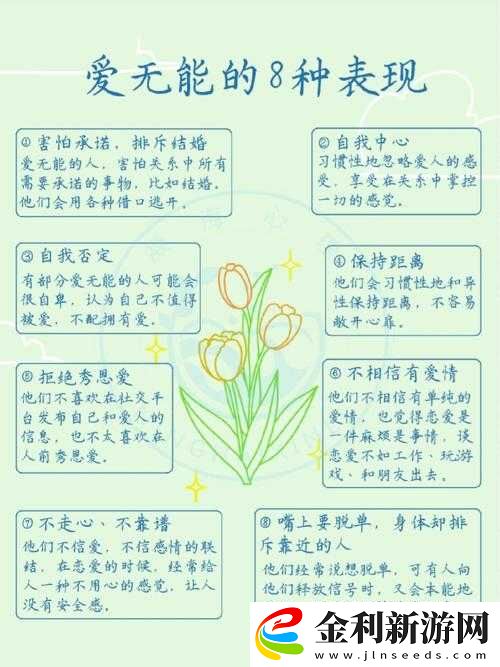 爱无能的8种表现
①害怕承诺,排斥结婚
爱无能的人,害怕关系中所有
需要承诺的事物,比如结婚。
他们会用各种借口逃开。
②自我中心
习惯性地忽略爱人的感
受,享受在关系中掌控
一切的感觉。
③自我否定
有部分爱无能的人可能会
很自卑,认为自己不值得
被爱,不配拥有爱。
④保持距离
他们会习惯性地和异
性保持距离,不容易
敞开心扉。
⑤拒绝秀恩爱
他们不喜欢在社交平
台发布自己和爱人的
信息,也不太喜欢在
人前秀恩爱。
⑥不相信有爱情
他们不相信有单纯的
爱情,也觉得恋爱是
一件麻烦是事情,谈
恋爱不如工作、玩游
戏、和朋友出去。
⑦不走心、不靠谱
他们不信爱,不信感情的联
结,在恋爱的时候,经常给
人一种不用心的感觉,让人
没有安全感。
⑧嘴上要脱单,身体却排
斥靠近的人
他们经常说想脱单,可有人向
他们释放信号时,又会本能地
金利新游网
www.jlnseeds.com